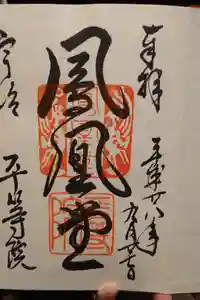 奉拝
平成廿八年
九月廿一日
鳳凰堂
宇治
平等院